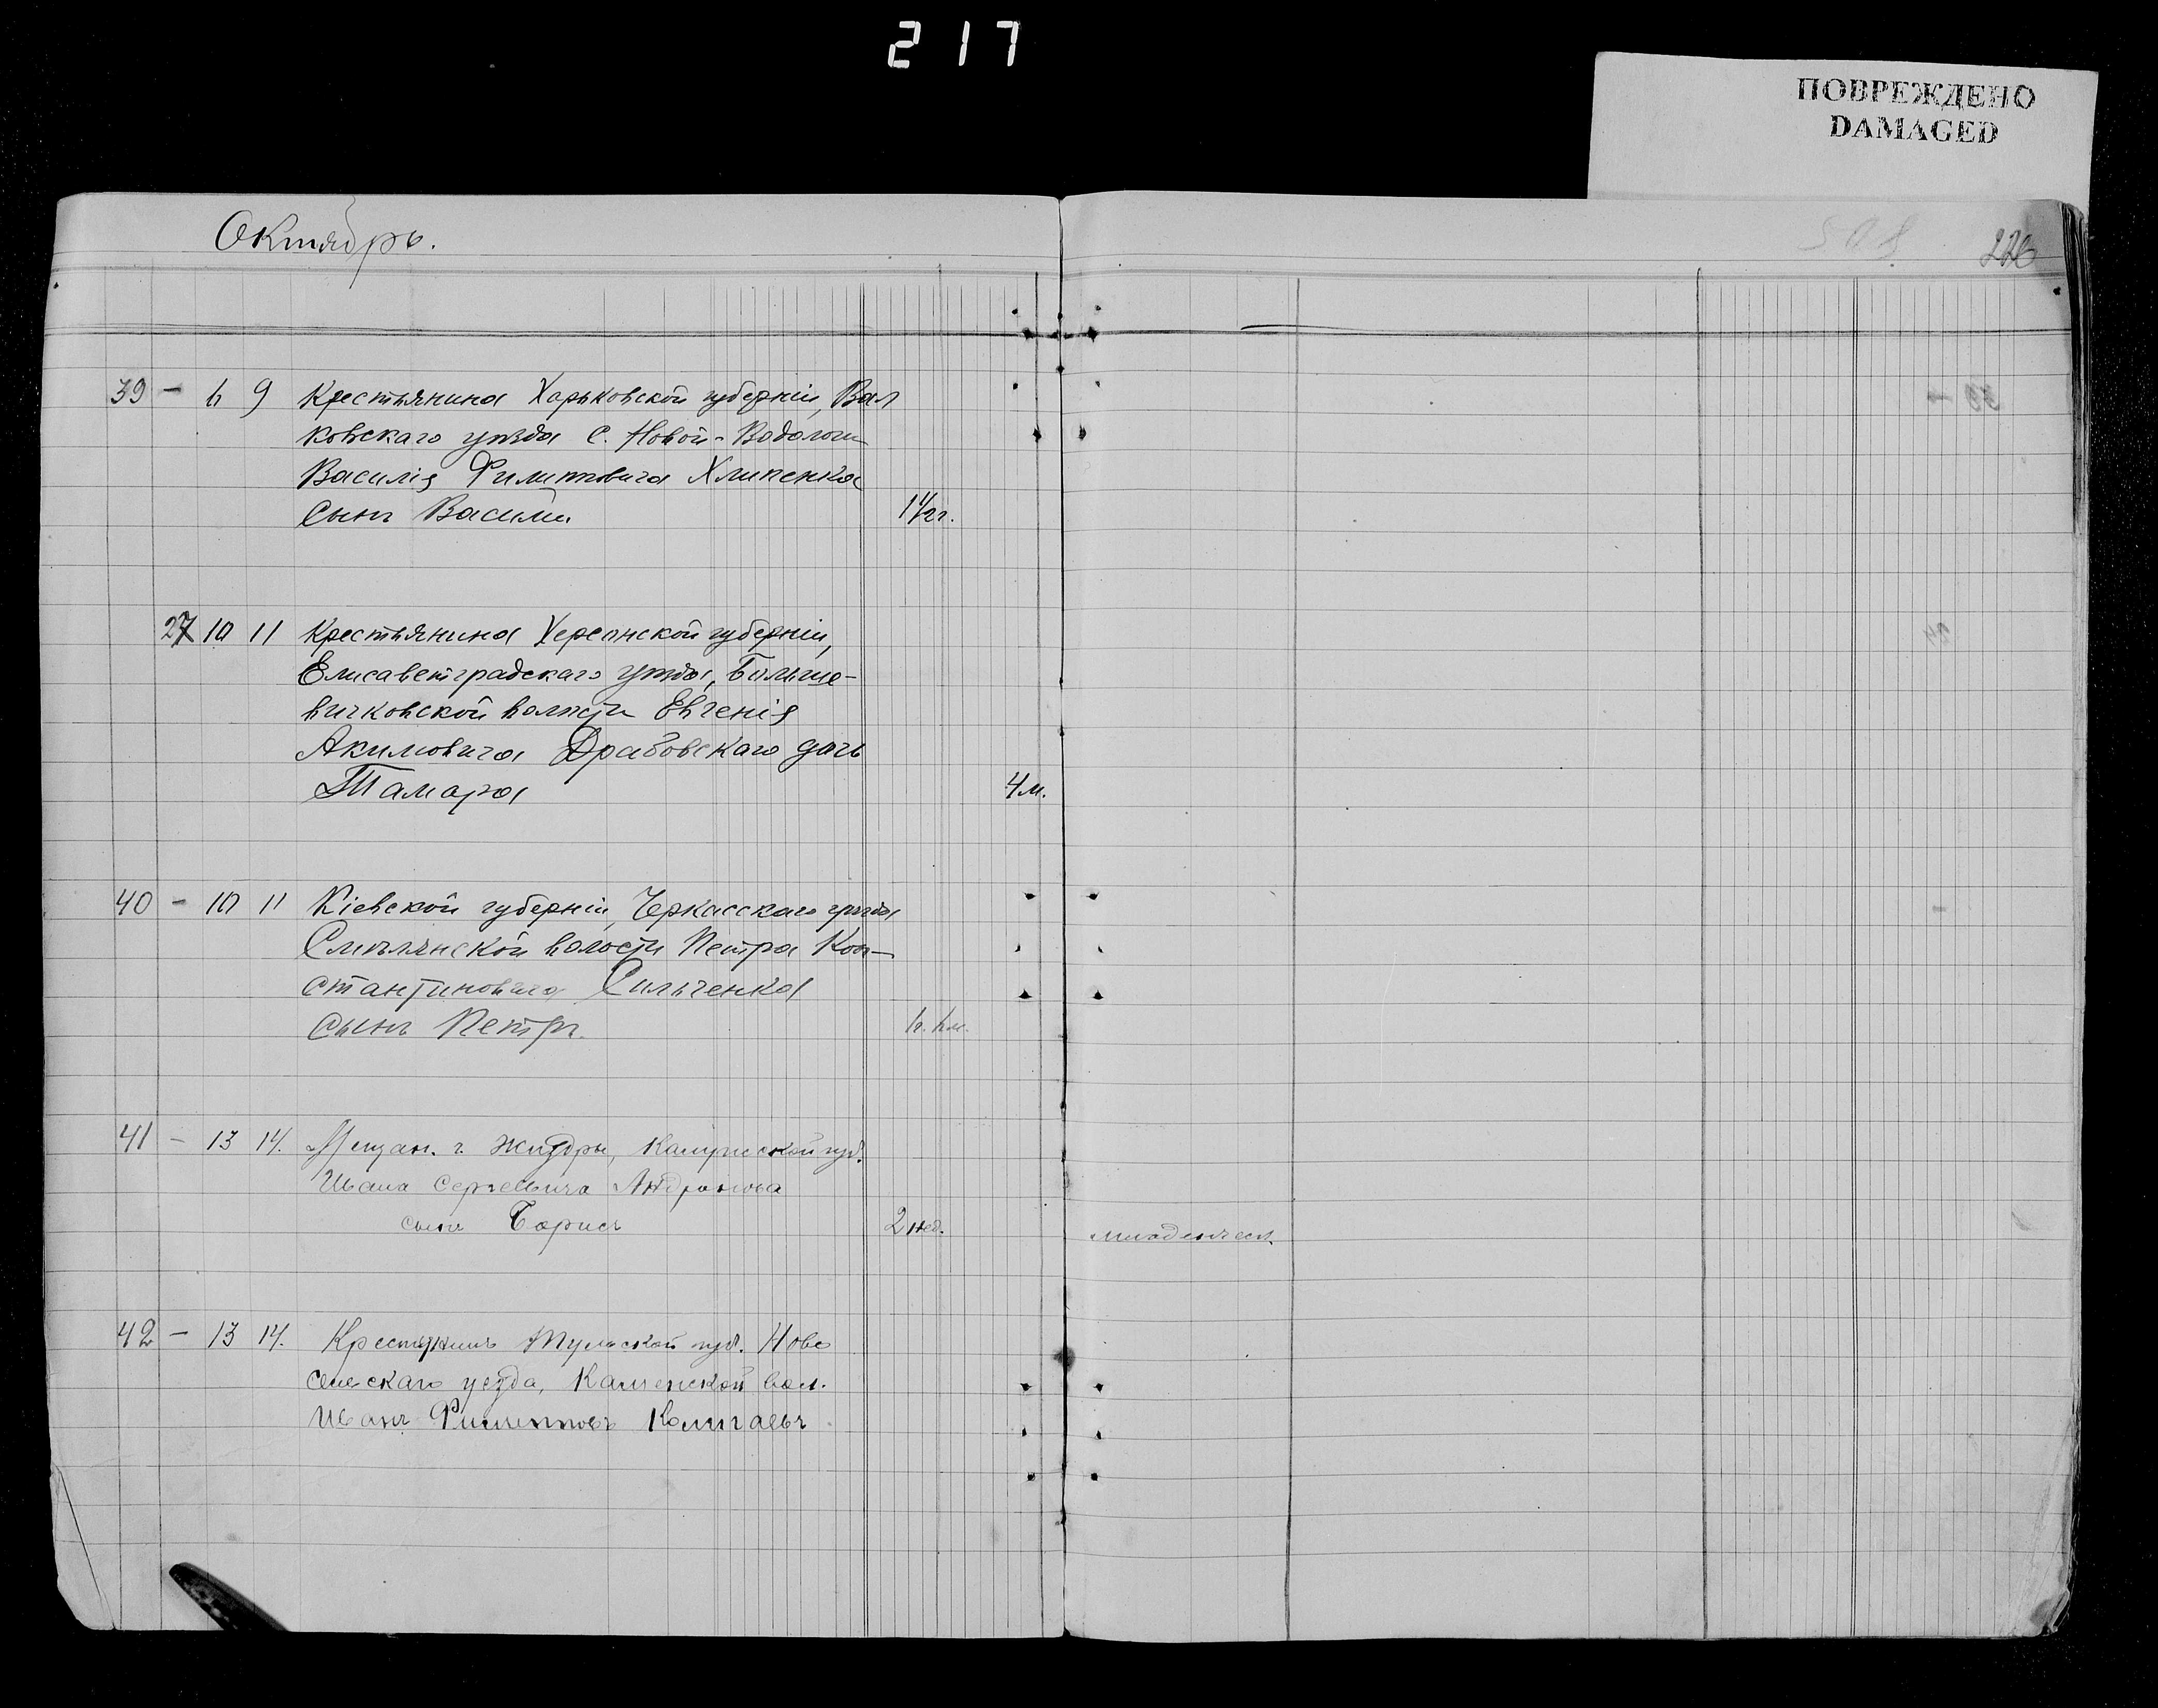 217
ПОВРЕЖДЕНО
DAMAGED
Октябрь.
226
39 - 6 9 Крестьянина Харьковской губерніи, Вал
ковскаго уѣзда С. Новой-Водолаги
Василія Филипповича Хлипенка
сынъ Василій 1 1/2 г.
27 10 11 Крестьянина Херсонской губерніи,
Елисаветградскаго уѣзда, Больше-
вичковской волости Евгенія
Акимовича Драбовскаго дочь
Тамара 4 м.
40 - 10 11 Кіевской губерніи, Черкасскаго уѣзда
Смѣлянской волости Петра Кон-
стантиновича Сильченка
сынъ Петръ.
41 - 13 14. Мещан. г. Жиздры, Калужской губ.
Ивана Сергеевича Андронова
сынъ Борисъ 2 нед. младенческ.
42 - 13 14. Крестьянинъ Тульской губ. Ново
сильскаго уезда, Каменской вол.
Иванъ Филипповъ